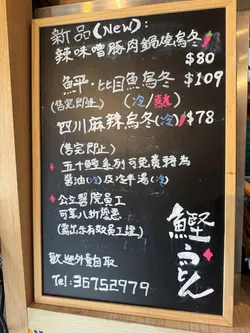 新品(New):
辣味噌豚肉鍋燒烏冬
$80
鮮·比目魚烏冬 $109
(售完即止) (冷/熱)
四川麻辣烏冬(冷) $78
(售完即止)
五十鰹系列可免費轉為
醬油(冷)及冷半湯(冷)
公立醫院員工
可享八折優惠
(需出示有效員工證)
歡迎外賣自取
Tel: 36752979
鰹うどん